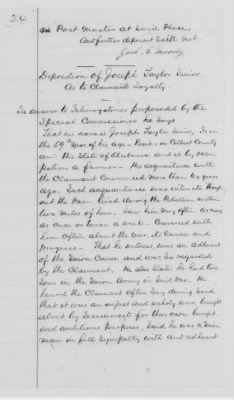 24
as Post Master at said place,
And further deponent Saith not.
Deposition of Joseph Taylor Senior
As to Claimants Loyalty
In answer to Interrogatories propounded by the
Special Commissioner he Says
That his name is Joseph Taylor Senior, is in
the 59th year of his age. Resides in Colbert County
and the State of Alabama and is by occu-
pation a farmer. His acquaintance with
the Claimant Commenced more than
ago. Such acquaintance was intimate through
out the War. Lived during the Rebellion within
two miles of him. Saw him very often as many
as once or twice a week. Conversed with
him often about the war, its Causes and
progress. That he witness, was an adherent
of the Union Cause and was so regarded
by the Claimant. He also States he had two
Sons in the Union Army in said War. He
heard the Claimant often Say during said
that it was an unjust and unholy war brought
about by Secessionists for their own benefit
and ambitious purposes, Said he was a Union
man in full Sympathy with and adherent